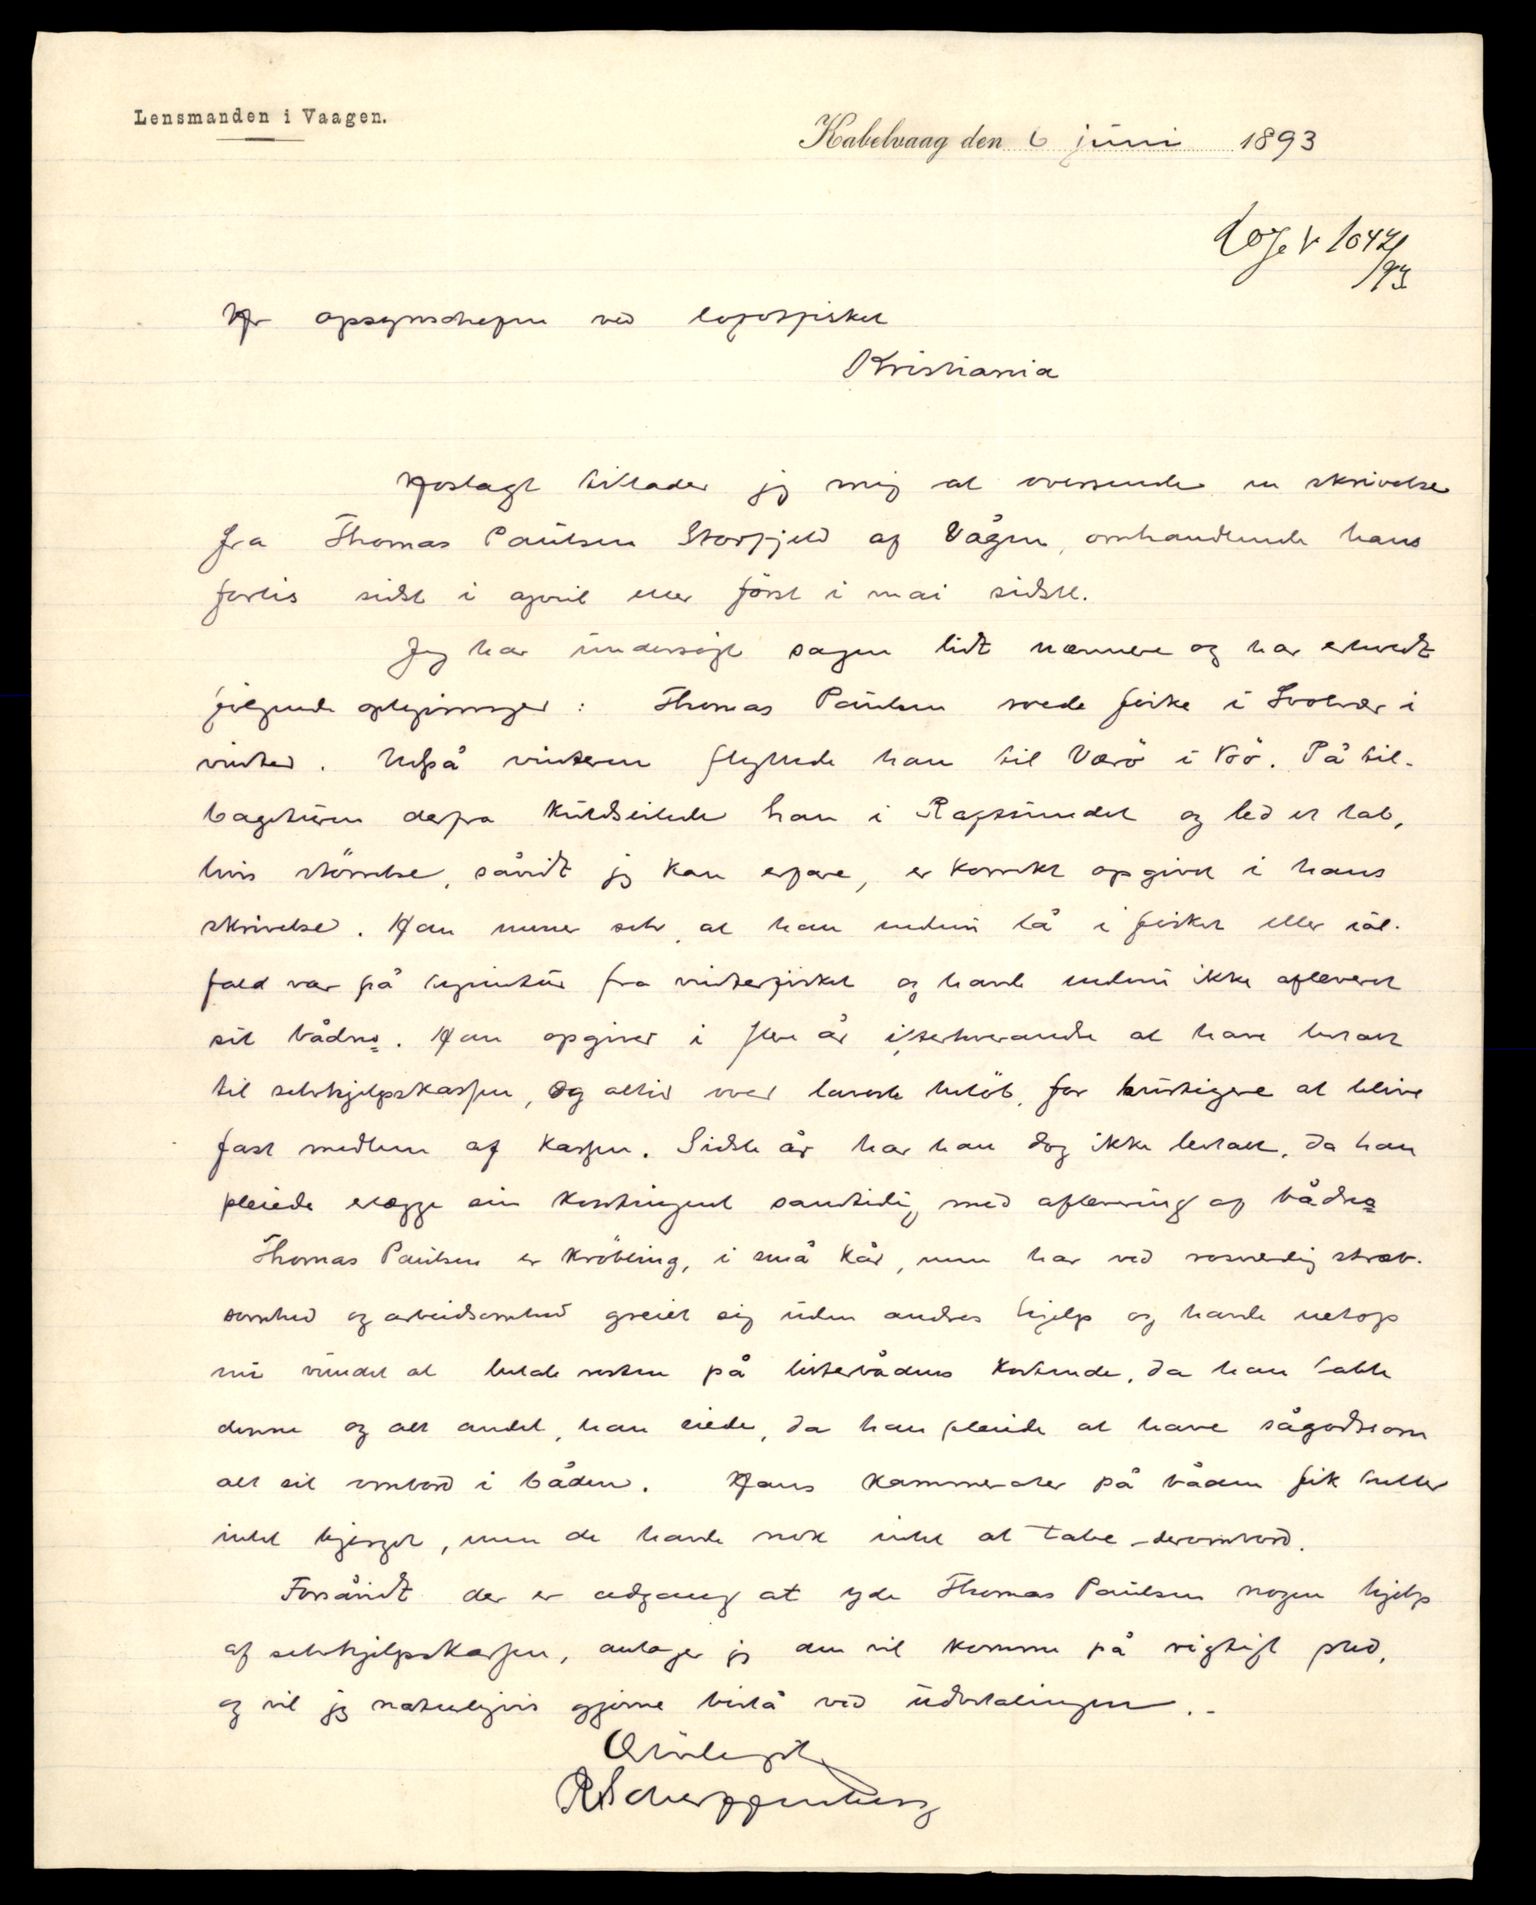 Lensmanden i Vaagen.
Kabelvaag den 6 juni 1893
Lofe V 1047/93
Hr opsynschefen ved lofotfisket
Kristiania
Hoslagt tillader jeg mig at oversende en skrivelse
fra Thomas Paulsen Storfjeld af Vågen, omhandlende hans
forlis sidst i april eller først i mai sidstl.
Jeg har undersøgt sagen lidt nærmere og har erhvedt
følgende oplysninger: Thomas Paulsen roede fiske i Svolvær i
vinter. Udpå vinteren flyttede han til Værø i Bø. På til-
bageturen derfra kuldseilede han i Raftsundet og led et tab,
hvis størrelse, såvidt jeg kan erfare, er korrekt opgivet i hans
skrivelse. Han mener selv, at han endnu lå i fisket eller ial-
fald var på hjemtur fra vinterfisket og havde endnu ikke afleveret
sit bådno. Han opgiver i flere år itterhverandre at have betalt
til selvhjelpskassen, og altid over laveste beløb, for hurtigere at blive
fast medlem af kassen. Sidste år har han dog ikke betalt, da han
pleiede erlægge sin kontingent samtidig med aflevering af bådno
Thomas Paulsen er krøbling, i små kår, men har ved rosverdig stræb-
somhed og arbeidsomhed greiet sig uden andres hjelp og havde netop
nu vundet at betale resten på listerbådens kostende, da han tabte
denne og alt andet, han eiede, da han pleiede at have sågodtsom
alt sit ombord i båden. Hans kammerater på båden fik heller
intet bjerget, men de havde nok intet at tabe derombord.
Forsåvidt der er adgang at yde Thomas Paulsen nogen hjelp
af selvhjelpskassen, antager jeg den vil komme på rigtigt sted,
og vil jeg naturligvis gjerne bistå ved udbetalingen.-
Ærbødigst
R Scherffenberg